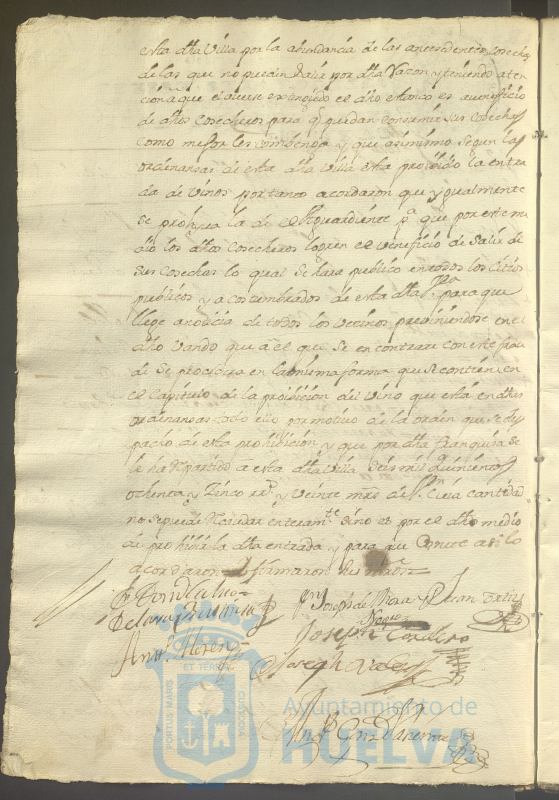 esta dha Villa por la abundancia de las antecedentes Cosechas
de las que no pueden salir por dha razon, y teniendo aten
cion a que el averse extinguido el año estanco es a veneficio
de dhos Cosecheros para q puedan consumir sus Cosechas
como mejor les combenga y que asimismo segun las
ordenansas de esta dha Villa esta proivido la entra
da de vinos por tanto acordaron que ygualmente
se prohiva la de el Aguardiente pa que por este me
dio los dhos Cosecheros logren el veneficio de salir de
sus Cosechas lo qual se hara publico en todos los sitios
publicos y acostumbrados de esta dha Va para que
llege a noticia de todos los vecinos previniendose en el
dho vando que a el que se encontrare con este frau
de se procedera en la misma forma que se contiene en
el Capitulo de la proivicion del vino que esta en dhas
ordenansas todo ello por motivo de la orden que se des
pacho de esta prohibicion y que por dha franquisa se
le ha Repartido a esta dha Villa seis mil quinientos
ochenta y Zinco rs y veinte mrs de vn Cuia cantidad
no se puede Recaudar enteramte sino es por el dho medio
de prohivir la dha entrada y para que Conste asi lo
acordaron y firmaron sus mrds
Joseph de Mora y Juan Ortiz
Negro
Joseph Cordero
Joseph
ET TERRAE
PORTUS MARIS
CUSTODIA
Ayuntamiento de
HUELVA